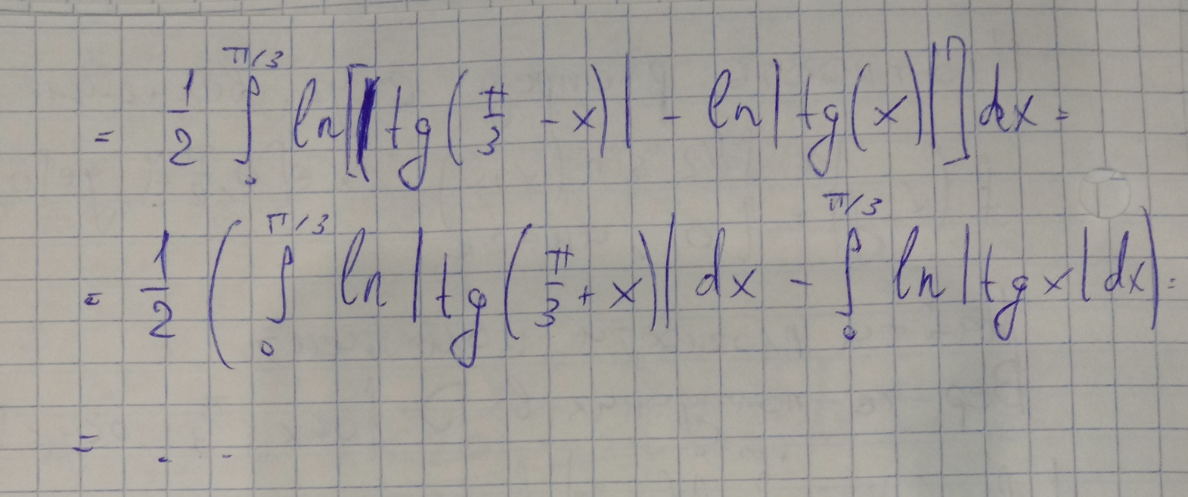 = 1/2 ∫₀^{π/3} ln[|tg(π/3 - x)| - ln|tg(x)|] dx =
= 1/2 (∫₀^{π/3} ln|tg(π/3 + x)| dx - ∫₀^{π/3} ln|tg x| dx) =
= . . .